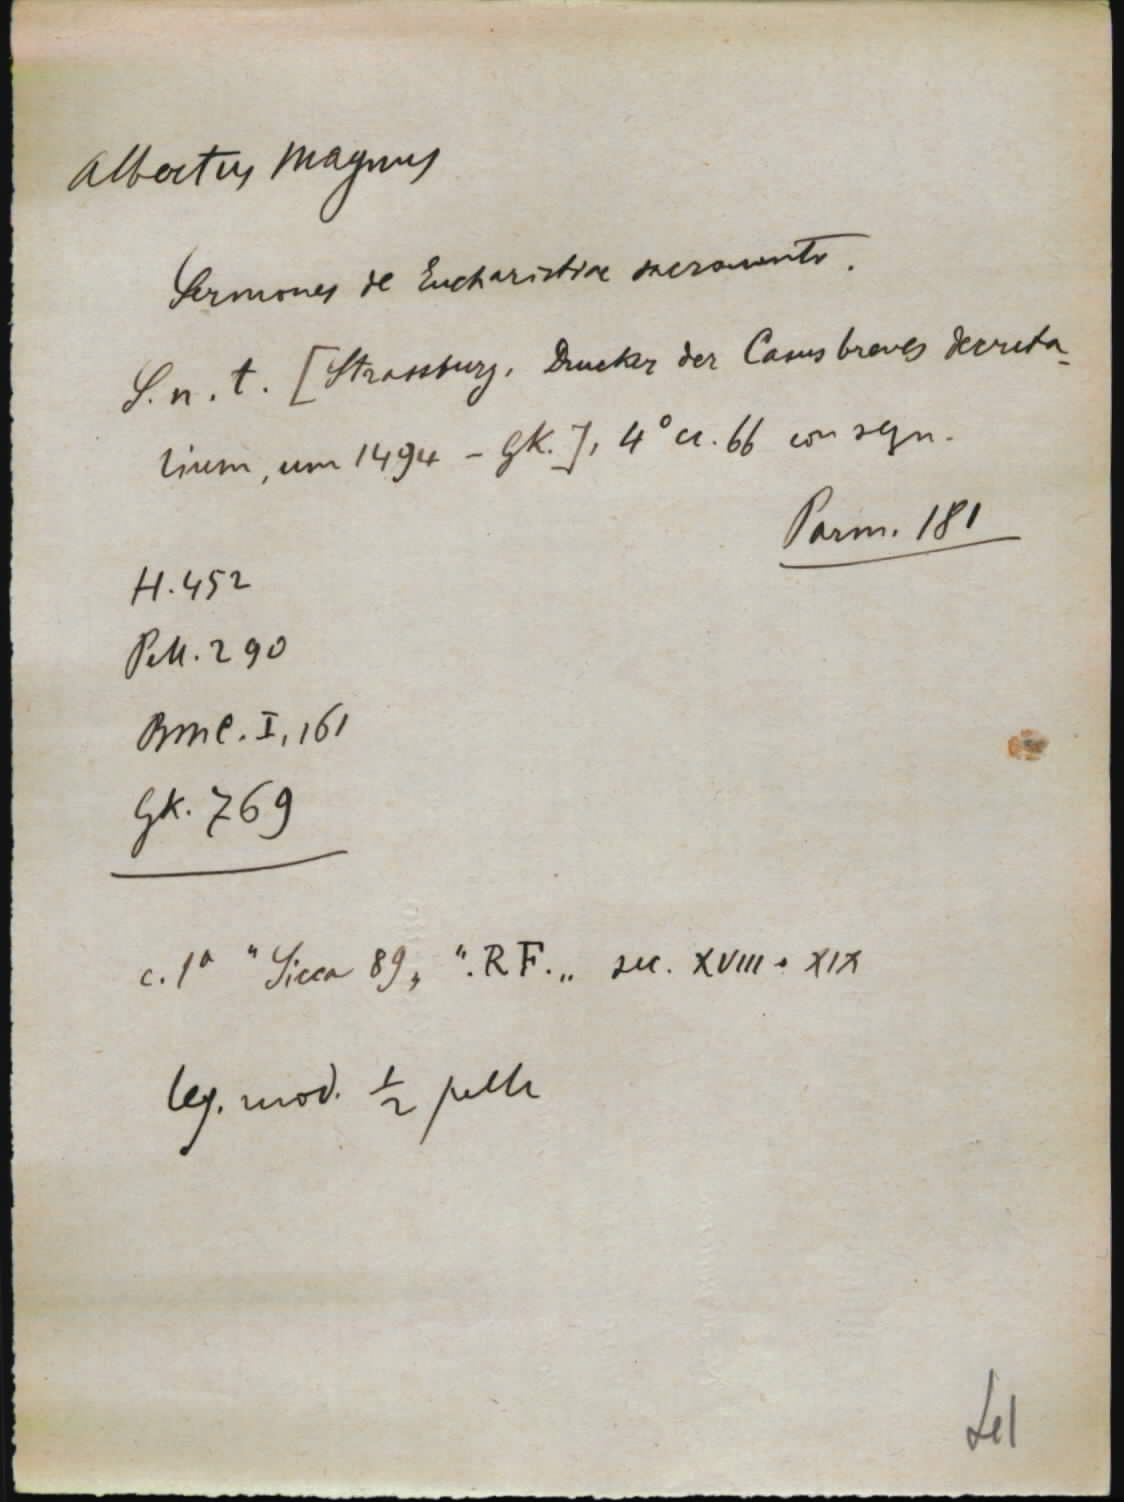 Albertus Magnus
Sermones de Eucharistiae sacramento.
S. n. t. [Strassburg, Drucker der Casus breves decreta-
lium, um 1494 – GK.], 4° cc. 66 con segn.
Parm. 181
H. 452
Pell. 290
BMC. I, 161
GK. 769
c. 1a "Sicca 89„ ".RF.„ sec. XVIII • XIX
leg. mod. ½ pelle